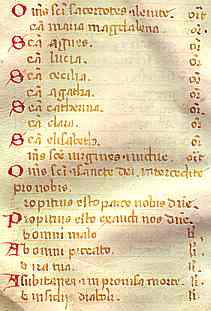 Om̅s sc̅i sacerdotes ⁊ leuite. or̅t
ca̅ maria magdalena. or̅
Sca̅ agnes. or̅
ca̅ lucia. or̅
Sca̅ cecilia. or̅
ca̅ agatha. or̅
Sca̅ catherina. or̅
ca̅ clara. or̅
Sca̅ elisabeth. or̅
m̅s sc̅e uirgines ⁊ uidue. or̅t
Om̅s sc̅i ⁊ sancte dei. intercedite
pro nobis.
ropitius esto parce nobis dn̅e.
Propitius esto exaudi nos dn̅e.
b omni malo li.
Ab omni peccato. li.
b ira tua. li.
A subitanea ⁊ inprouisa morte. li.
b insidiis diaboli. li.